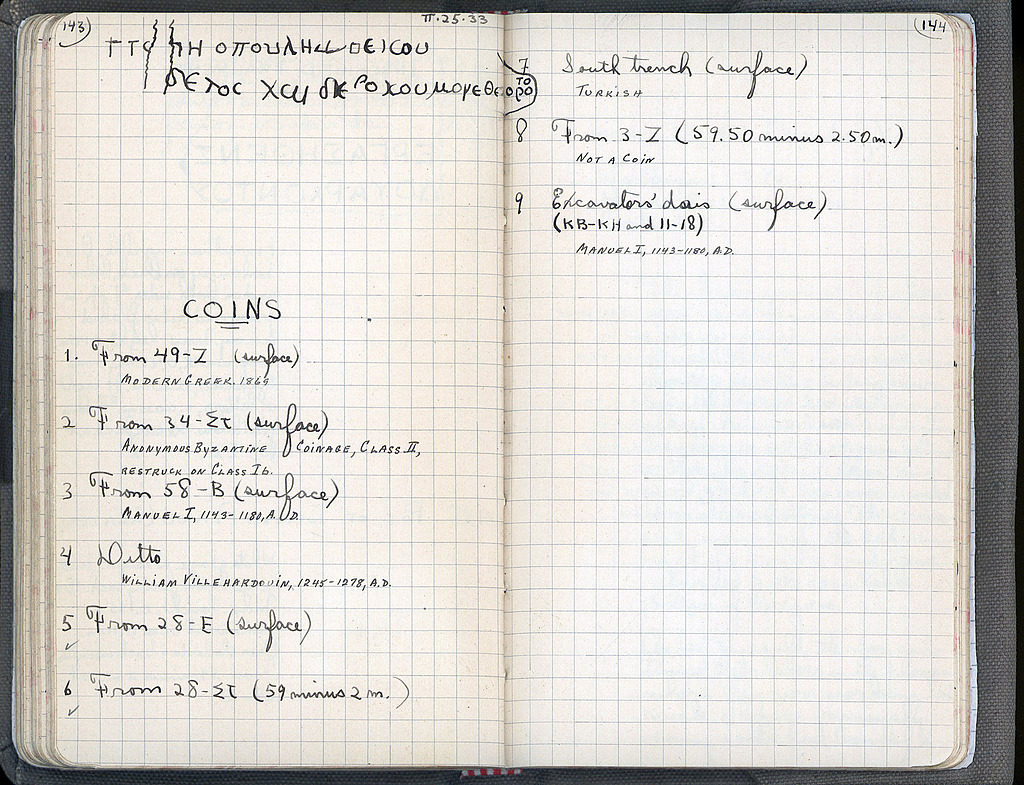 143
Π·25·33
COINS
1. From 49-Z (surface)
MODERN GREEK. 1869
2 From 34-Στ (surface)
ANONYMOUS BYZANTINE COINAGE, CLASS II,
RESTRUCK ON CLASS Ib.
3 From 58-B (surface)
MANUEL I, 1143-1180, A.D.
4 Ditto
WILLIAM VILLEHARDOUIN, 1245-1278, A.D.
5 From 28-E (surface)
✓
6 From 28-Στ (59 minus 2 m.)
✓
144
7 South trench (surface)
TURKISH
8 From 3-Z (59.50 minus 2.50 m.)
NOT A COIN
9 Excavators' dais (surface)
(KB-KH and 11-18)
MANUEL I, 1143-1180, A.D.